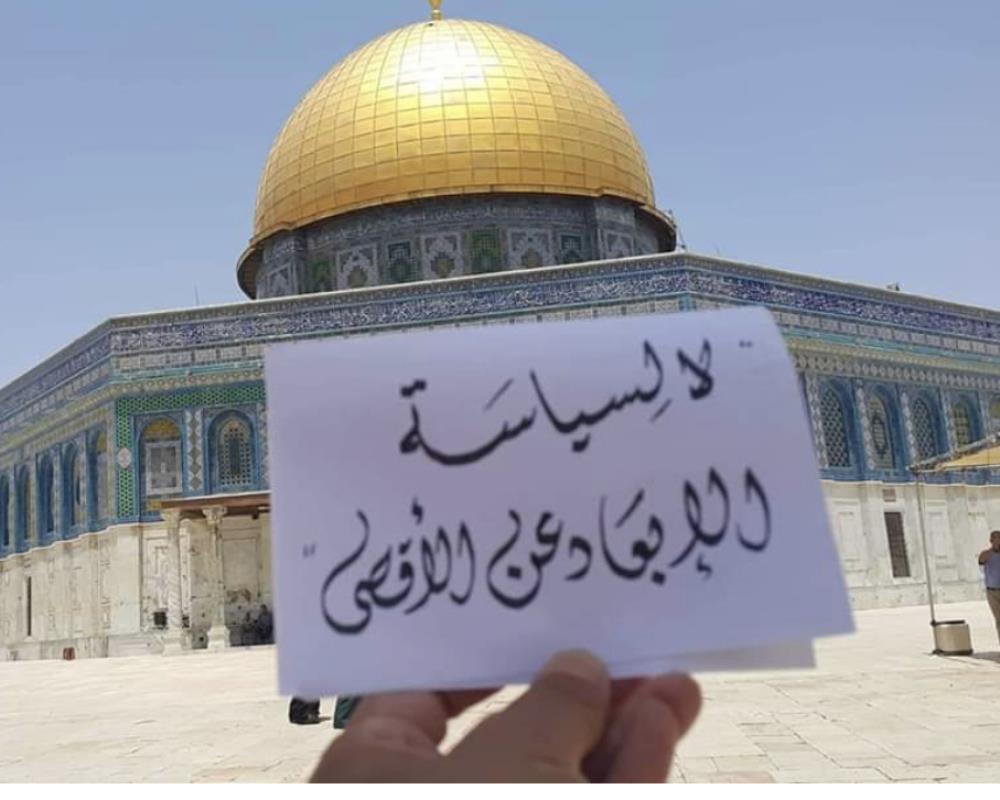 "لا لسياسة
الإبعاد عن الأقصى"